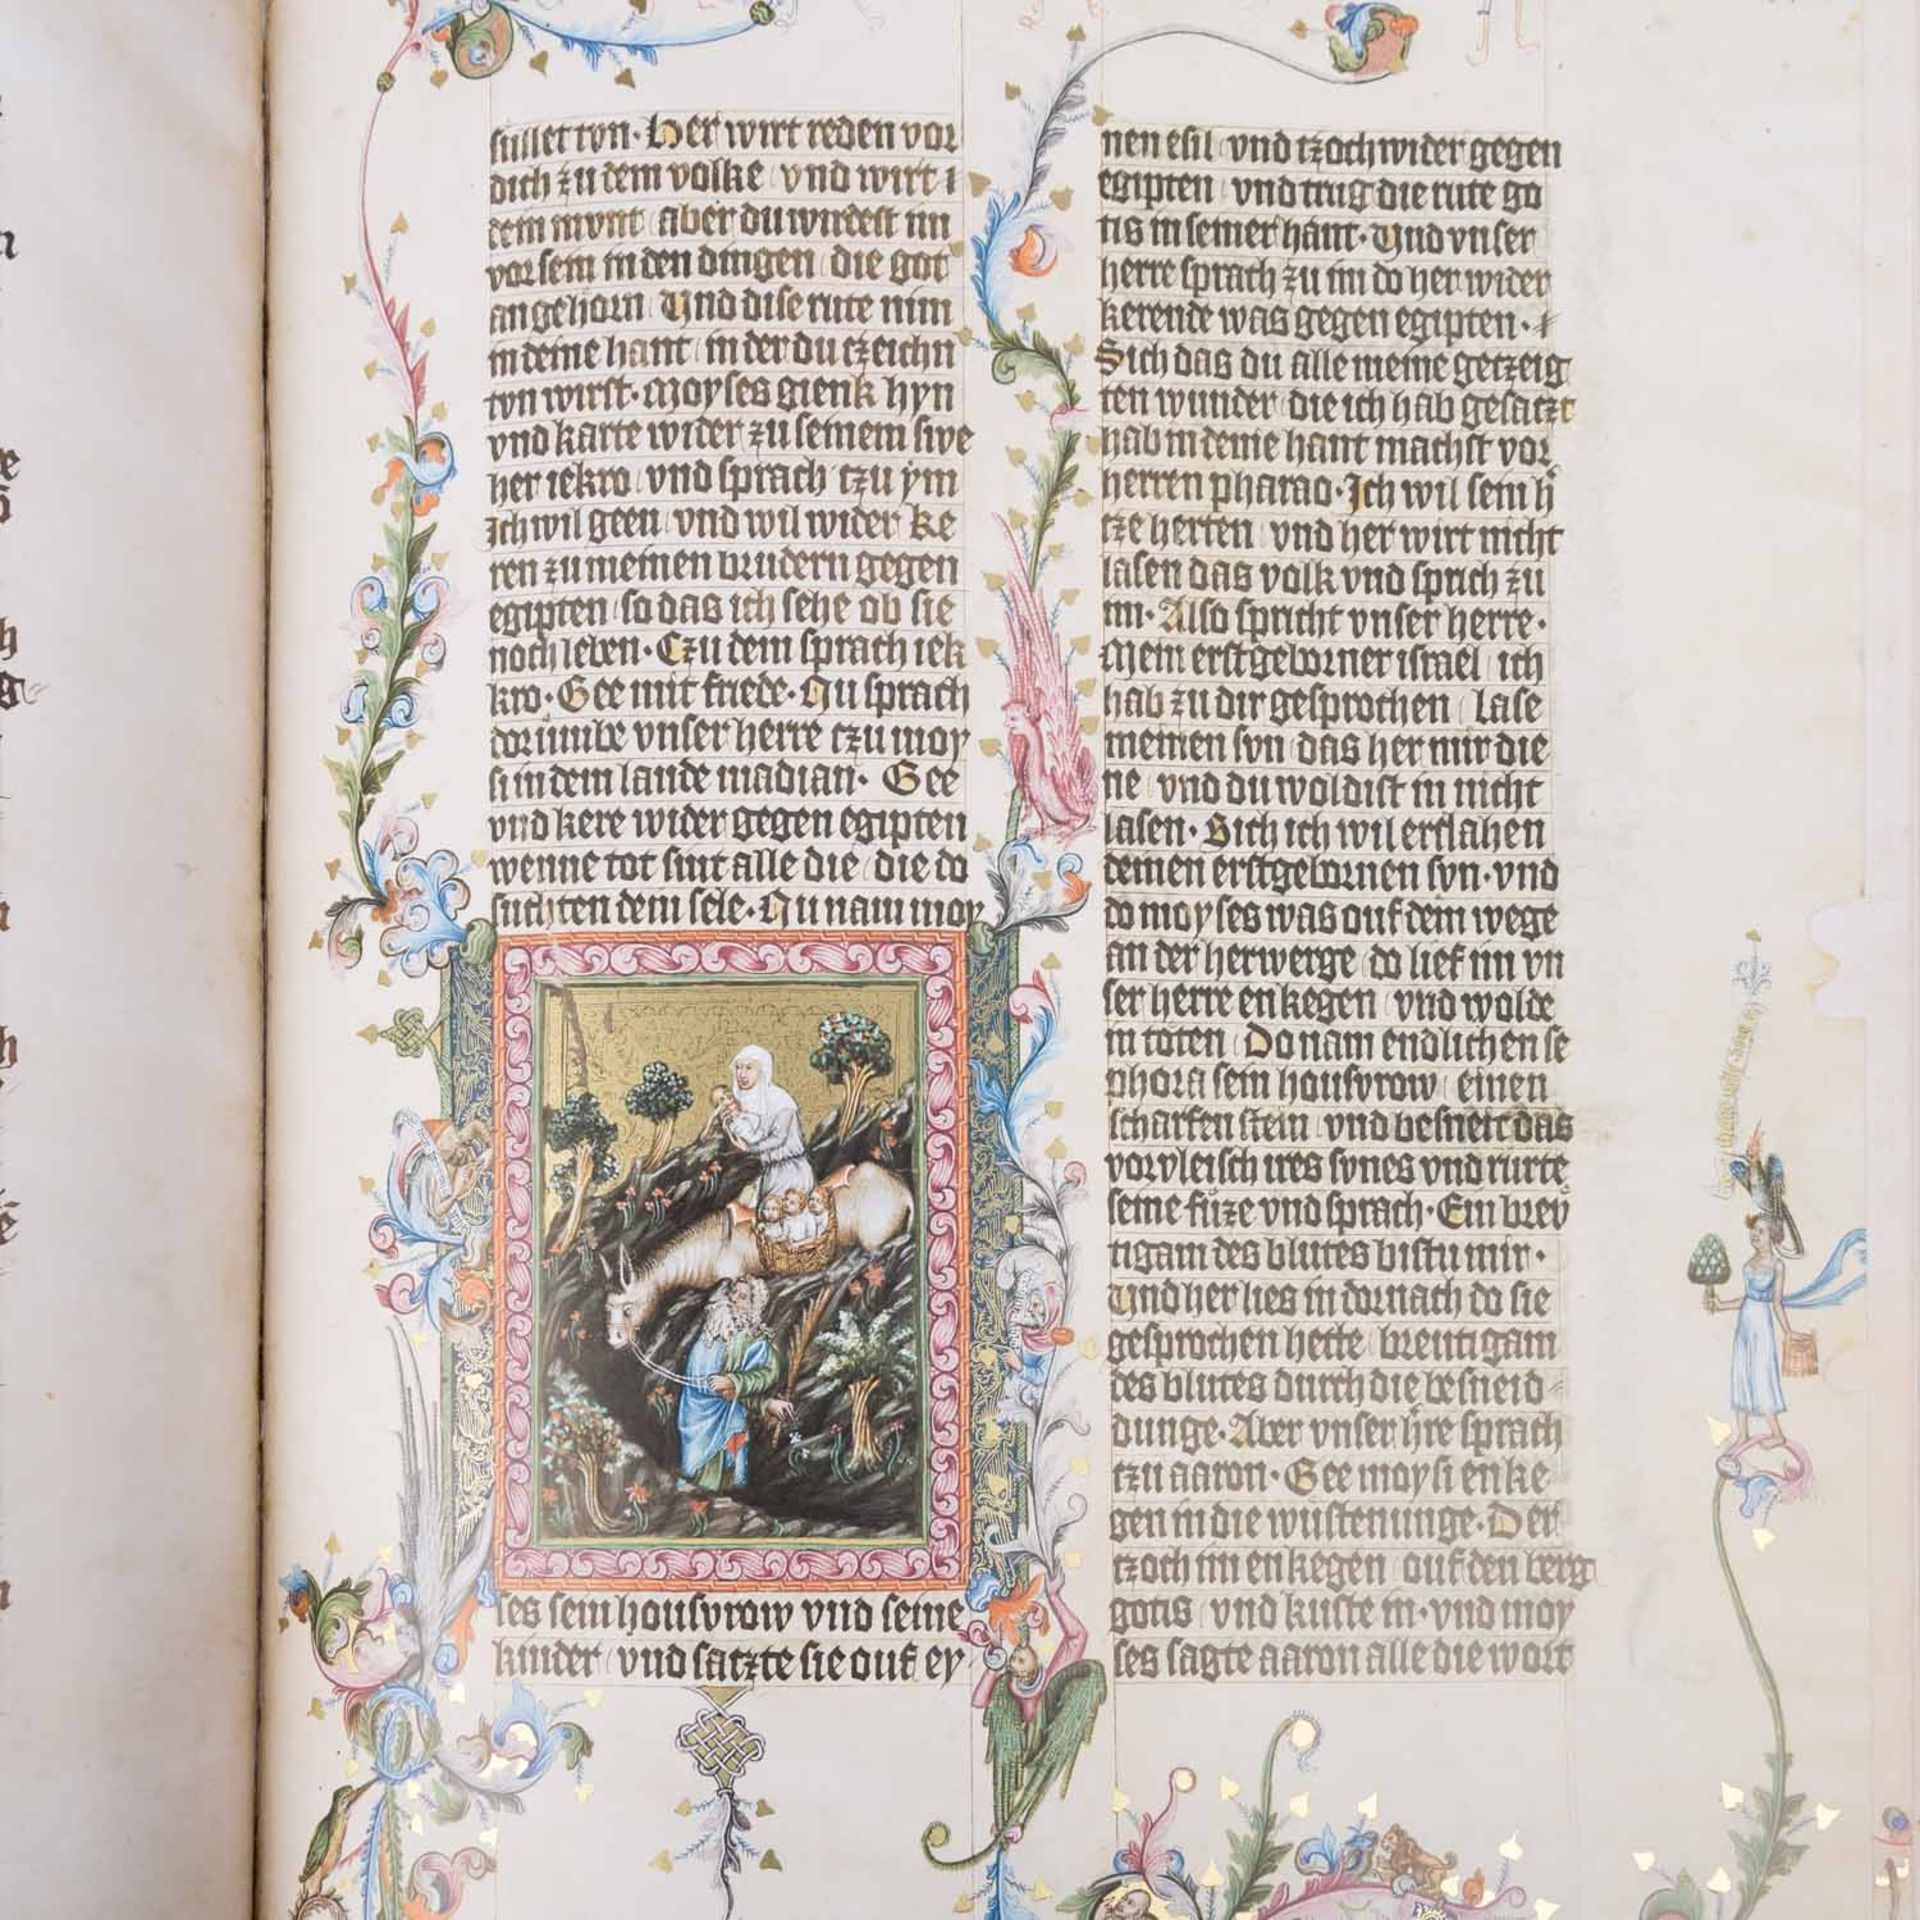 fullet ton · Her wirt reden vor
dich zu dem volke vnd wirt i
dem mvnt aber du wirdest im
vor sem in den dingen die got
angehorn Vnd dise rute nim
in deine hant in der du tzeichn
tvn wirst · Moyses gienk hyn
vnd karte wider zu seinem swe
her iekro vnd sprach tzu ẏm
Ich wil geen vnd wil wider ke
ren zu meinen brudern gegen
egipten so das ich sehe ob sie
noch leben · Czu dem sprach iek
kro · Gee mit friede · Nu sprach
dorumbe vnser herre tzu moy
si in dem lande madian · Gee
vnd kere wider gegen egipten
wenne tot sint alle die die do
suchten dein sele · Nu nam moy
ses sein housvrow vnd seine
kinder vnd satzte sie ouf ey
nen esil vnd tzoch wider gegen
egipten vnd trug die rute go
tis in seiner hant · Vnd vnser
herre sprach zu im do her wider
kerende was gegen egipten ·
Sich das du alle meine getzeig
ten wunder die ich hab gesatzt
hab in deine hant machst vor
herren pharao · Ich wil sein h̄
tze herten vnd her wirt nicht
lasen das volk vnd sprich zu
im · Also spricht vnser herre ·
Mein erstgeborner israel ich
hab zu dir gesprochen Lase
meinen svn das her mir die
ne vnd du woldist in nicht
lasen · Sich ich wil erslahen
deinen erstgebornen svn · vnd
do moyses was ouf dem wege
an der herwerge do lief im vn
ser herre enkegen vnd wolde
in toten Do nam endlichen se
phora sein housvrow einen
scharfen stein vnd besneit das
vorvleisch ires svnes vnd rurte
seine fuze vnd sprach · Ein breu
tigam des blutes bistu mir ·
Vnd her lies in dornach do sie
gesprochen hette breutigam
des blutes durch die besneid
dunge · Aber vnser h̄re sprach
tzu aaron · Gee moysi enke
gen in die wustenunge · Der
tzoch im enkegen ouf den berg
gotis vnd kuste in · vnd moy
ses sagte aaron alle die wort